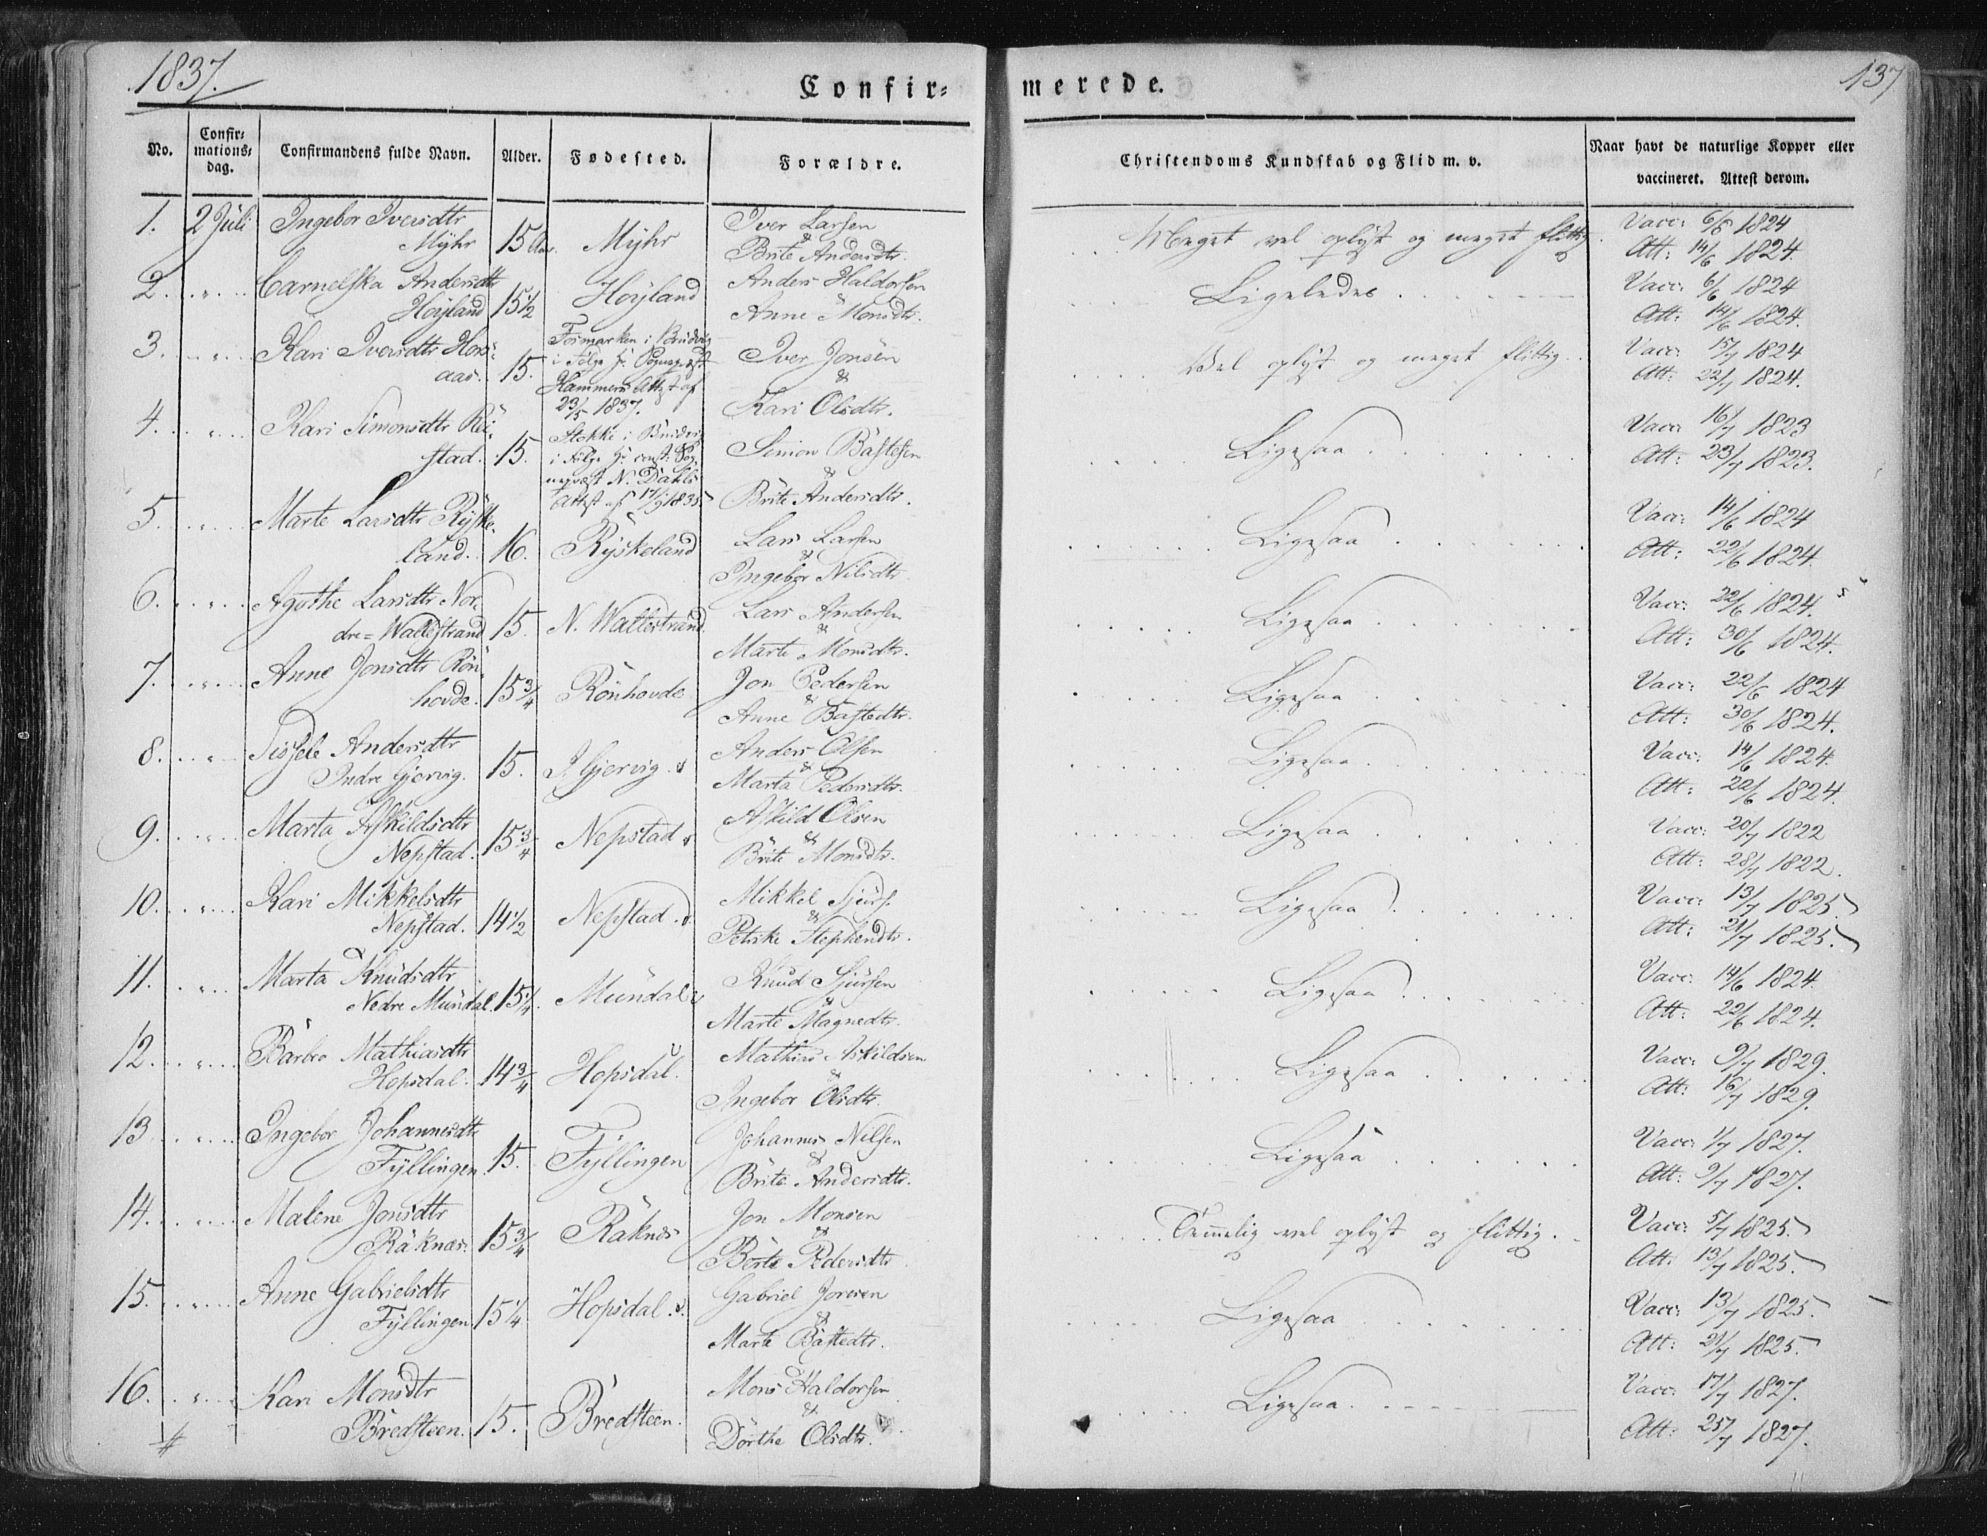 1837.
Confir-
merede.
137
No.
Confir-
mations-
dag.
Confirmandens fulde Navn.
Alder.
Fødested.
Forældre.
Christendoms Kundskab og Flid m. v.
Naar havt de naturlige Kopper eller
vaccineret. Attest derom.
1. 2 Juli Ingebor Iversdtr
Myhr 15 Aar Myhr
Iver Larsen
&
Brite Andersdtr.
Meget vel oplyst og meget flittig.
Vacc: 6/6 1824
Att: 14/6 1824.
2. " Carnelska Andersdtr
Höyland 15 1/2 Höyland
Anders Haldorsen
&
Anne Monsdtr.
Ligeledes
Vacc: 6/6 1824
Att: 14/6 1824.
3. " Kari Iversdtr Hors-
aas. 15.
Formarken i Brudvig
i Følge Hr. Sogneprest
Hammers Attest af
23/5 1837.
Iver Jonsen
&
Kari Olsdtr.
Vel oplyst og meget flittig.
Vacc: 15/7 1824
Att: 22/7 1824.
4. " Kari Simonsdtr Röi-
stad. 15.
Stokke i Brudvig
i Følge Hr const: Sog-
neprest N. Dahls
Attest af 17/9 1835
Simon Bastesen
&
Brite Andersdtr.
Ligesaa
Vacc: 16/7 1823
Att: 23/7 1823.
5. " Marte Larsdtr Ryske-
land. 16. Ryskeland
Lars Larsen
&
Ingebor Nilsdtr.
Ligesaa
Vacc: 14/6 1824
Att: 22/6 1824.
6. " Agathe Larsdtr Nor-
dre=Wallestrand 15. N. Wallestrand
Lars Andersen
&
Marte Monsdtr.
Ligesaa
Vacc: 22/6 1824.
Att: 30/6 1824.
7. " Anne Jonsdtr Rön-
hovde. 15 3/4 Rönhovde
Jon Pedersen
&
Anne Bastedtr.
Ligesaa
Vacc: 22/6 1824
Att: 30/6 1824.
8. " Sissele Andersdtr
Indre Gjervig. 15. I. Gjervig.
Anders Olsen
&
Marta Pedersdtr.
Ligesaa
Vacc: 14/6 1824.
Att: 22/6 1824.
9. " Marta Askildsdtr
Nepstad. 15 3/4 Nepstad
Askild Olsen
&
Brite Monsdtr.
Ligesaa
Vacc: 20/7 1822
Att: 28/7 1822.
10. " Kari Mikkelsdtr
Nepstad. 14 1/2 Nepstad.
Mikkel Sjurs.
&
Petrike Stephensdtr.
Ligesaa
Vacc: 13/7 1825
Att: 21/7 1825.
11. " Marta Knudsdtr
Nedre Mundal. 15 1/4. Mundal
Knud Sjursen
&
Marte Magnedtr.
Ligesaa
Vacc: 14/6 1824.
Att: 22/6 1824.
12. " Barbro Mathiasdtr
Hopsdal. 14 3/4 Hopsdal.
Mathias Askildsen
&
Ingebor Olsdtr.
Ligesaa
Vacc: 9/7 1829.
Att: 16/7 1829.
13. " Ingebor Johannesdtr
Fyllingen. 15. Fyllingen
Johannes Nilsen
&
Brite Andersdtr.
Ligesaa
Vacc: 1/7 1827.
Att: 9/7 1827.
14. " Malene Jonsdtr
Raknes. 15 3/4 Raknes
Jon Monsen
&
Berte Pedersdtr.
Temmelig vel oplyst og flittig.
Vacc: 5/7 1825.
Att: 13/7 1825.
15. " Anne Gabrielsdtr
Fyllingen 15 1/4 Hopsdal.
Gabriel Joresen
&
Marte Bastedtr.
Ligesaa
Vacc: 13/7 1825.
Att: 21/7 1825.
16. " Kari Monsdtr
Bredsteen. 15. Bredsteen.
Mons Haldorsen
&
Dorthe Olsdtr.
Ligesaa.
Vacc: 17/7 1827.
Att: 25/7 1827.